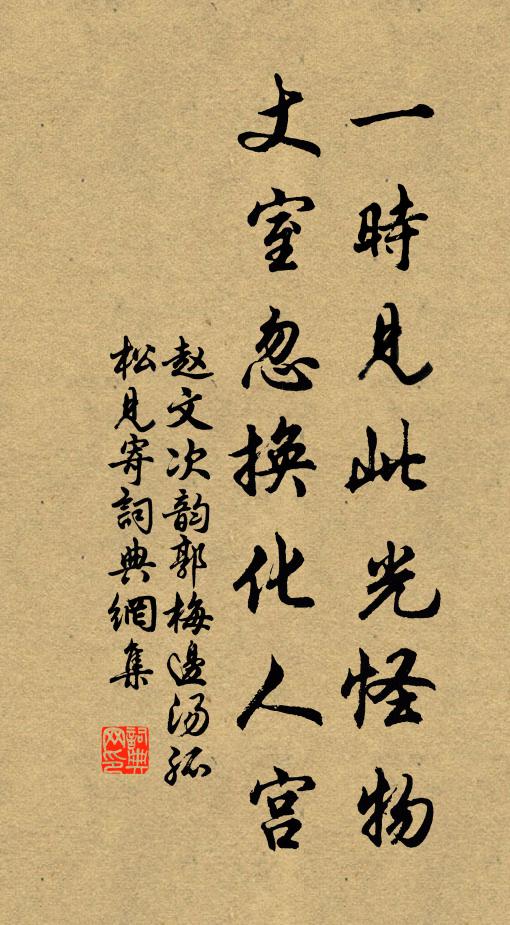 一時見此光怪物
丈室忽換化人宫
赵文次韵郭梅邊湯孤
松見寄詞典網集
詞典网印